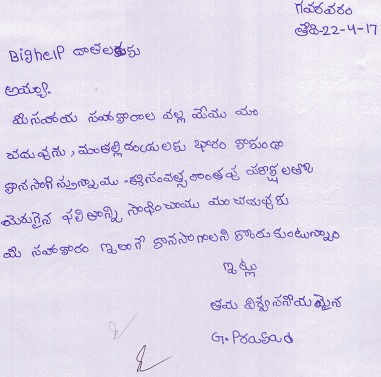 గవరవరం
తేది-22-4-17
Bighelp దాతలకు
అయ్యా.
మీ సహాయ సహకారాల వల్ల మేము మా
చదువును, మాతల్లిదండ్రులకు భారం కాకుండా
కొనసాగిస్తున్నాము. ఈసంవత్సరాంతపు పరీక్షలలో
మెరుగైన ఫలితాన్ని సాధించాము మా చదువుకు
మీ సహకారం ఇలాగే కొనసాగాలని కోరుకుంటున్నాం
ఇట్లు
తమ విశ్వసనీయమైన
G. Prasad